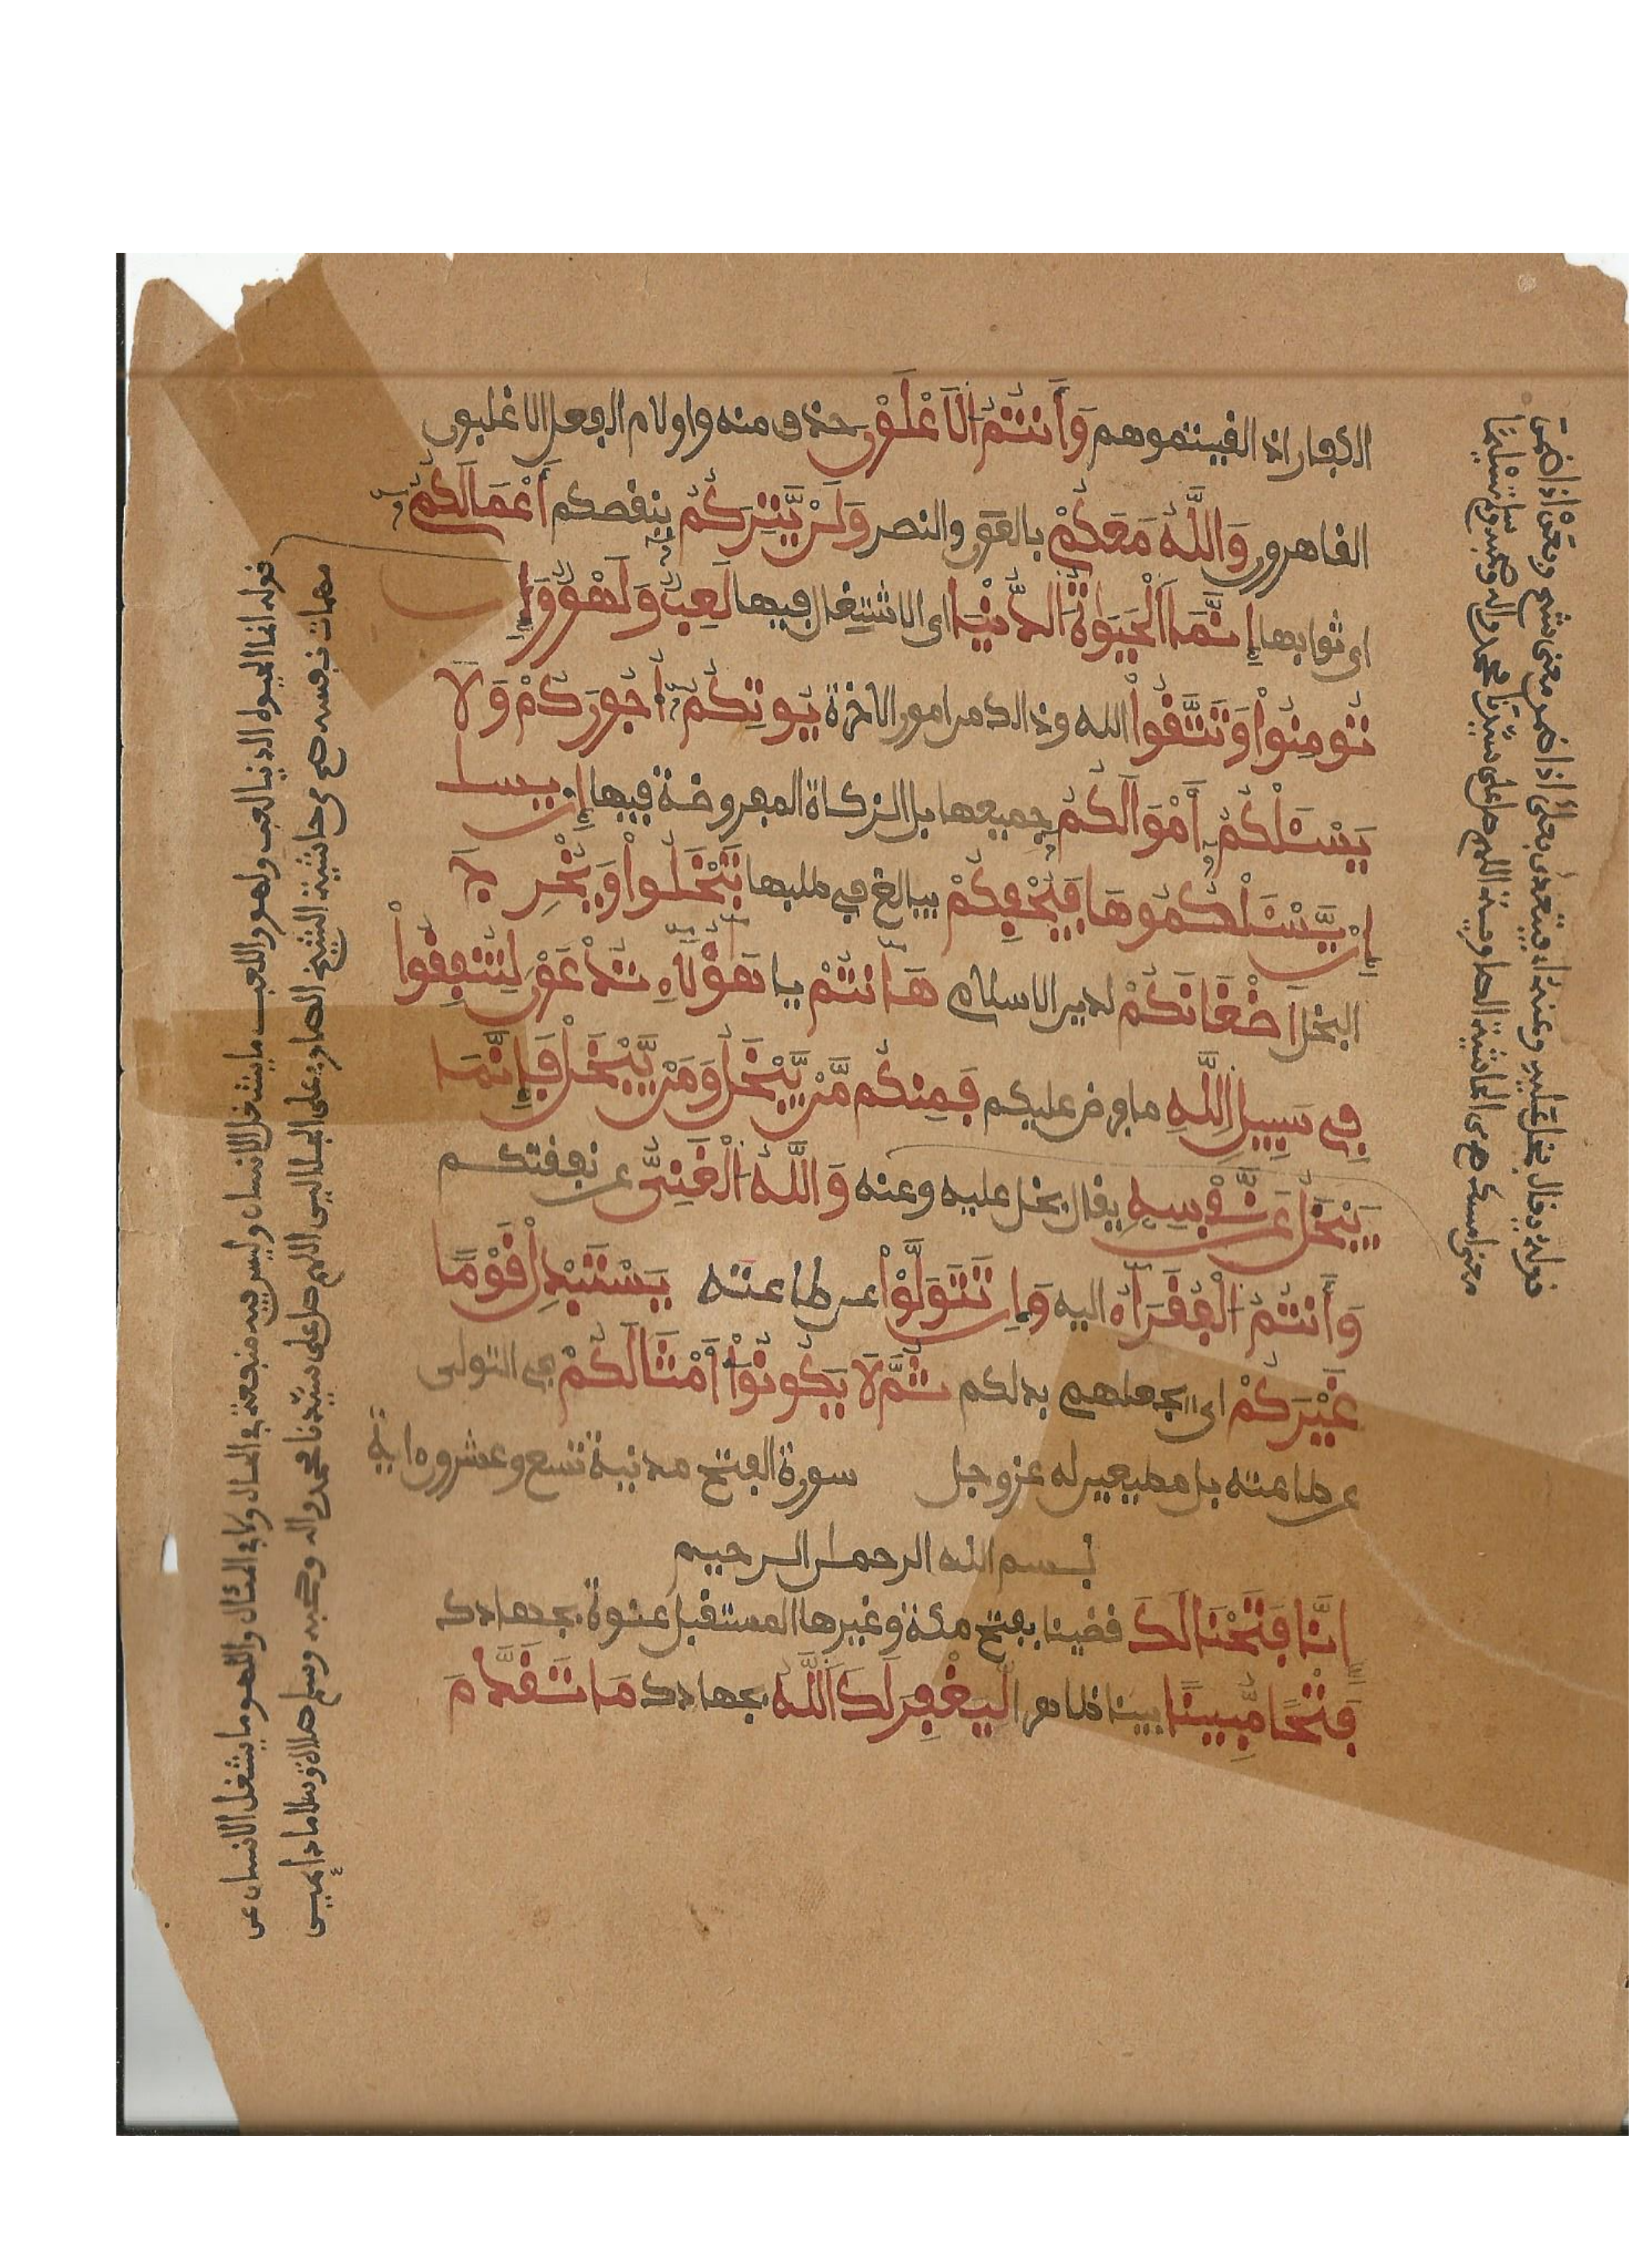 الكفار اذا لفيتموهم وَأَنتُمُ الَاعْلَوْنَ حذف منه واو لام الفعل الاغلبون
القاهرون وَاللَّهُ مَعَكُمْ بالعون والنصر وَلَنْ يَّتِرَكُمُ ينقصكم أَعْمَالَكُمُ
اى ثوابها إِنَّمَا اَلْحَيَوٰةُ الدُّنْيَا اى الاشتغال فيها لَعِبٌ وَلَهْوٌ وَإِن
تُومِنُواْ وَتَتَّقُواْ الله وذالك من امور الاخرة يُوتِكُمُ أُجُورَكُمْ وَلَا
يَسْـَٔلْكُمُ أَمْوَالَكُمُ جميعها بل الزكاة المفروضة فيها إن يسـا
إِنْ يَّسْـَٔلْكُمُوهَا فَيُحْفِكُمْ يبالغ في طلبها تَبْخَلُواْ وَيُخْرِجِ
البخل اضْغَانَكُمْ لدين الاسلام هَٰأَنتُمْ يا هَٰؤُلَآءِ تُدْعَوْنَ لِتُنفِقُواْ
فِي سَبِيلِ اللَّهِ ما فرض عليكم فَمِنكُم مَّنْ يَّبْخَلُ وَمَنْ يَّبْخَلْ فَإِنَّمَا
يَبْخَلُ عَن نَّفْسِهِ يقال بخل عليه وعنه وَاللَّهُ الْغَنِىُّ عن نفقتكم
وَأَنتُمُ الْفُقَرَآءُ اليه وَإِن تَتَوَلَّوْاْ عن طاعته يَسْتَبْدِلْ قَوْمًا
غَيْرَكُمْ اى يجعلهم بدلكم ثُمَّ لَا يَكُونُوٓاْ أَمْثَالَكُمْ في التولى
عن طاعته بل مطيعين له عز وجل سورة الفتح مدنية تسع وعشرون اية
بسم الله الرحمن الرحيم
اِنَّا فَتَحْنَا لَكَ قضينا بفتح مكة وغيرها المستقبل عنوة بجهادك
فَتْحًا مُّبِينًا بينا ظاهرا لِّيَغْفِرَ لَكَ اللَّهُ بجهادك مَا تَقَدَّمَ
قوله انما الحيوة الدنيا لعب ولهو واللعب ما يشغل الانسان وليس فيه منفعة في الحال ولا في المئال واللهو ما يشغل الانسان عن
مهمات نفسه صح من حاشية الشيخ الصاوى على الجلالين اللهم صل على سيدنا محمد واله وصحبه وسلم صلاة وسلاما دايمين
قوله ويقال بخل عليه وعنه اى فيتعدى بعلى اذا ضمن معنى شح وبعن اذا ضمن
معنى امسك صح من حاشية الصاوى اللهم صل على سيدنا محمد واله وصحبه وسلم تسليما